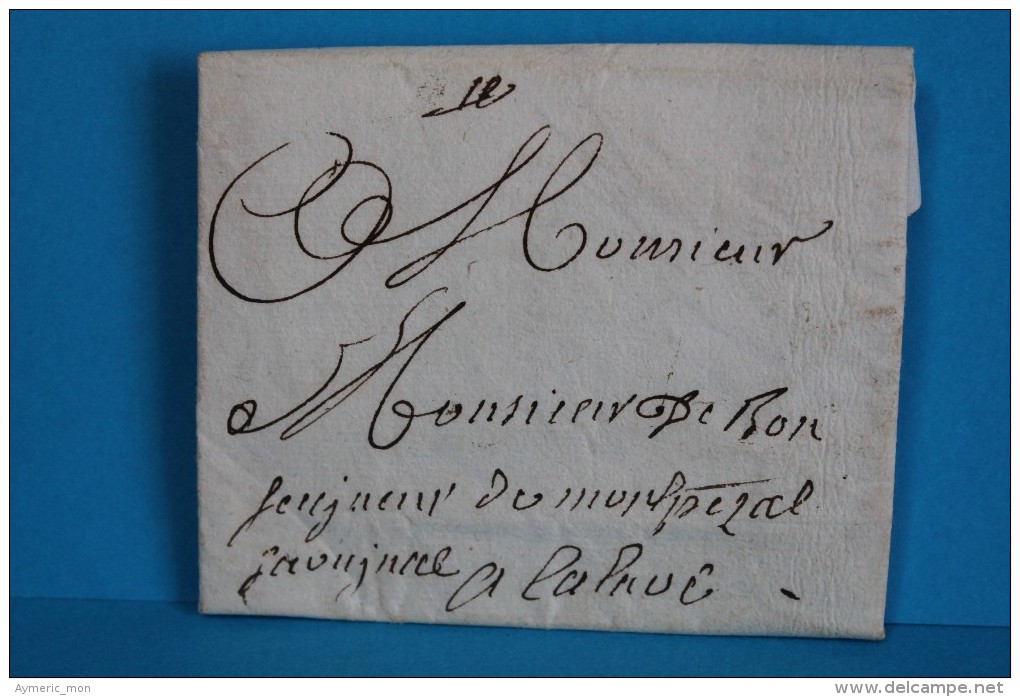 Monsieur
Monsieur De Bon
seigneur de montpezat
savignac a
Aymeric_mon
www.delcampe.net